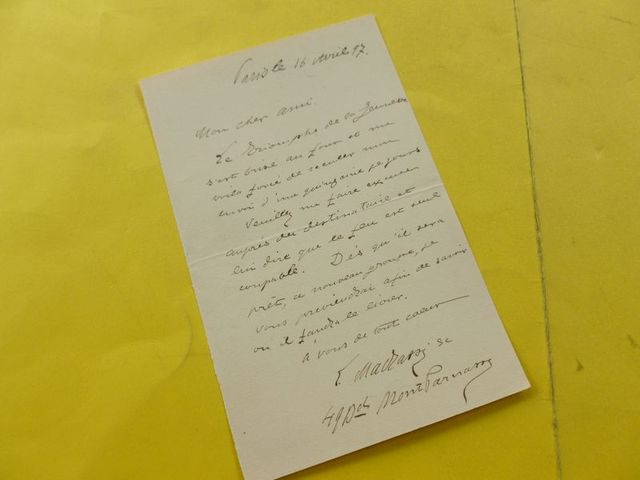 Paris le 16 Avril 97.
Mon cher ami.
Le Triomphe de la Jeunesse
s'est brisé au four et me
voilà forcé de reculer mon
envoi d'une quinzaine de jours
Veuillez me faire excuser
auprès du destinataire et
lui dire que le feu est seul
coupable. Dès qu'il sera
prêt, ce nouveau groupe, je
vous préviendrai afin de savoir
où il faudra le livrer.
à vous de tout cœur
sc
49 Bd MontParnasse